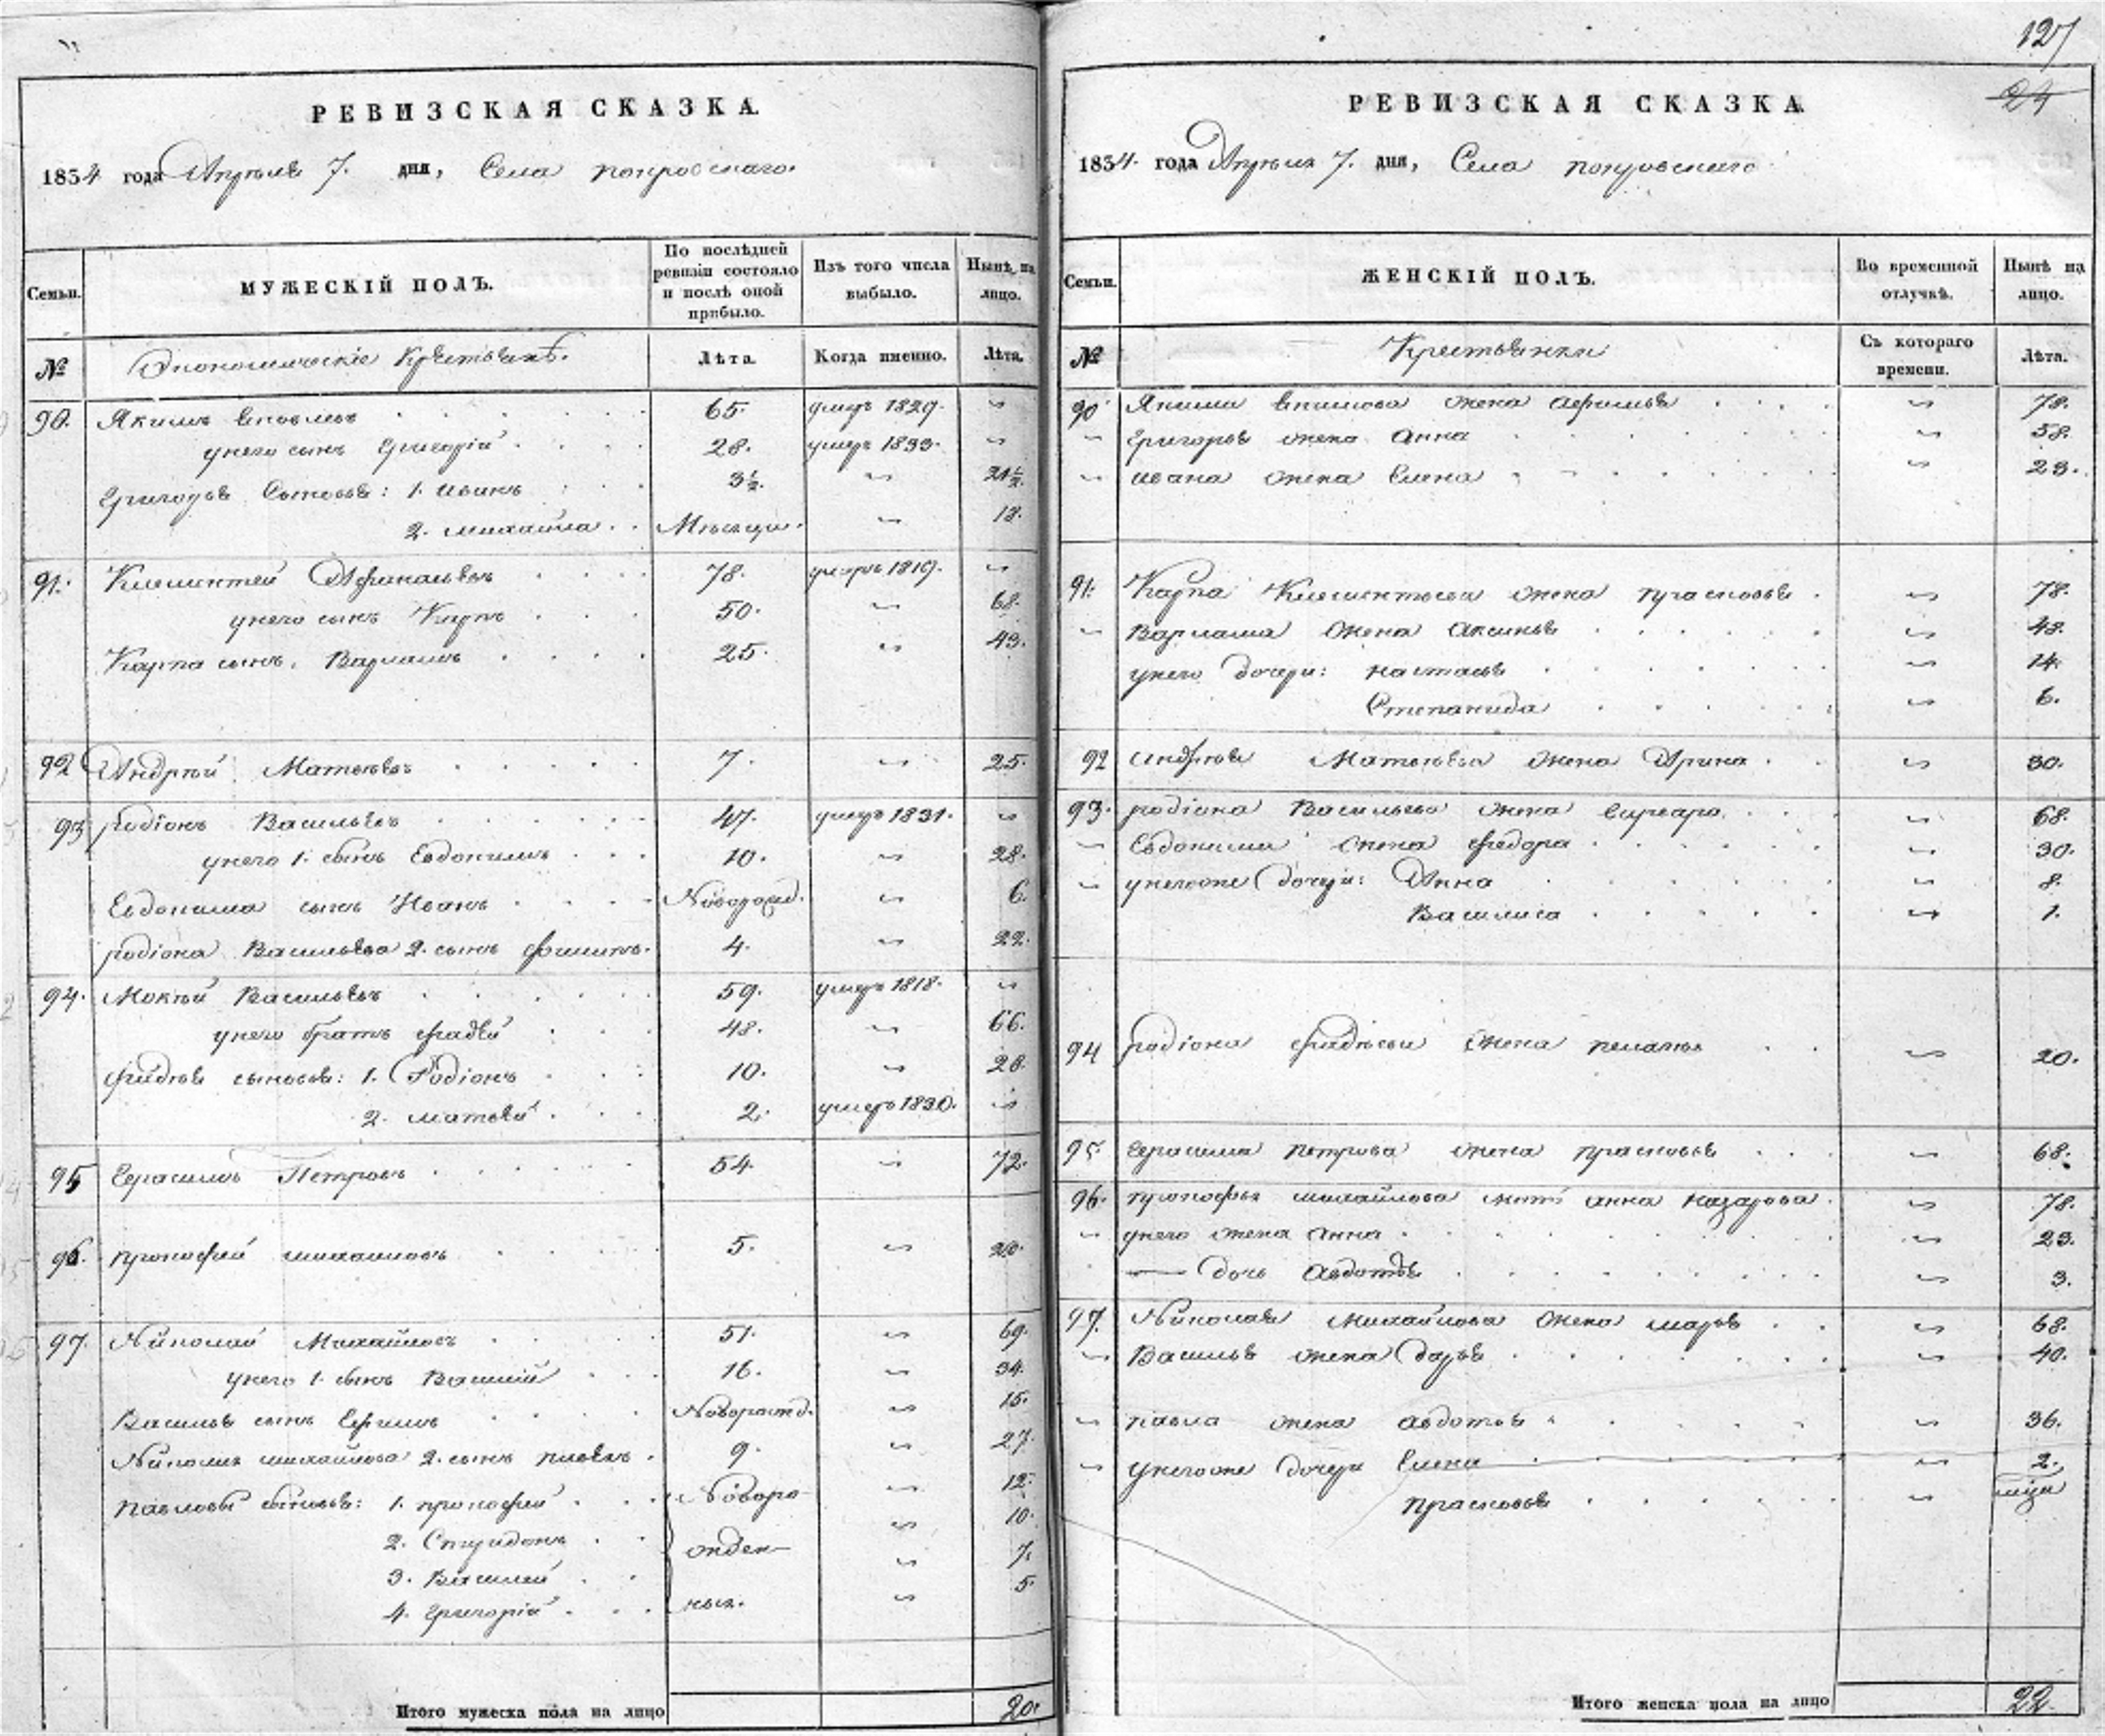 РЕВИЗСКАЯ СКАЗКА.
1834 года Апреля 7. дня, Села покровскаго.
Семьи.
МУЖЕСКІЙ ПОЛЪ.
По послѣдней ревизіи состояло и послѣ оной прибыло.
Изъ того числа выбыло.
Нынѣ на лицо.
№
Экономическіе Крестьянѣ.
Лѣта.
Когда именно.
Лѣта.
90. Якимъ 65. умеръ 1829. ״
унего сынъ Григорій 28. умеръ 1833. ״
Григорья Сыновья: 1. иванъ 3½. ״ 21½.
2. михайла Мѣсяцы. ״ 18.
91. Климентей Афанасьевъ 78. умеръ 1819. ״
унего сынъ Карпъ 50. ״ 68.
Карпа сынъ Варламъ 25. ״ 43.
92 Андрѣй Матвѣевъ 7. ״ 25.
93 родіонъ Васильевъ 47. умеръ 1831. ״
унего 1. сынъ Евдокимъ 10. ״ 28.
Евдокима сынъ Иванъ Новорожд. ״ 6.
родіона Васильева 2. сынъ филипъ. 4. ״ 22.
94. Мокѣй Васильевъ 59. умеръ 1818. ״
унего братъ фадѣй 48. ״ 66.
фадѣя сыновья: 1. Родіонъ 10. ״ 28.
2. матвѣй 2. умеръ 1830. ״
95 Герасимъ Петровъ 54. ״ 72.
96. прокофей михайловъ 5. ״
97. Николай Михайловъ 51. ״ 69.
унего 1. сынъ Василій 16. ״ 34.
Василья сынъ Ефимъ Новорожд. ״ 15.
Николая михайлова 2. сынъ павелъ 9. ״ 27.
Павловы сыновья: 1. прокофей Новоро- ״ 12.
2. Спиридонъ ״ 10.
жден-
3. Василей ״ 7.
4. Григорій ныя. ״ 5.
Итого мужеска пола на лицо 20.
127
24
РЕВИЗСКАЯ СКАЗКА
1834. года Апреля 7. дня, Села покровскаго
Семьи.
ЖЕНСКІЙ ПОЛЪ.
Во временной отлучкѣ.
Нынѣ на лицо.
№
Крестьянки
Съ котораго времени.
Лѣта.
90 Якима жена афимья ״ 78.
״ Григорья жена анна ״ 58.
״ ивана жена Елена ״ 23.
91. Карпа Климентьева жена прасковья ״ 78.
״ Варлама жена аксинья ״ 48.
унего дочери: настасья ״ 14.
Степанида ״ 6.
92 андрѣя Матвѣева жена Арина ״ 30.
93. родіона Васильева жена ״ 68.
״ Евдокима жена федора ״ 30.
״ унегоже дочери: Анна ״ 8.
Василиса ״ 1.
94 родіона фадѣева жена пелагея ״ 20.
95. герасима петрова жена прасковья ״ 68.
96. прокофья михайлова мать анна назарова ״ 78.
״ унего жена анна ״ 23.
— дочь авдотья ״ 3.
97. Николая михайлова жена марья ״ 68.
״ Василья жена дарья ״ 40.
״ павла жена авдотья ״ 36.
״ унегоже дочери Елена ״ 2.
прасковья ״
Итого женска пола на лицо 22.